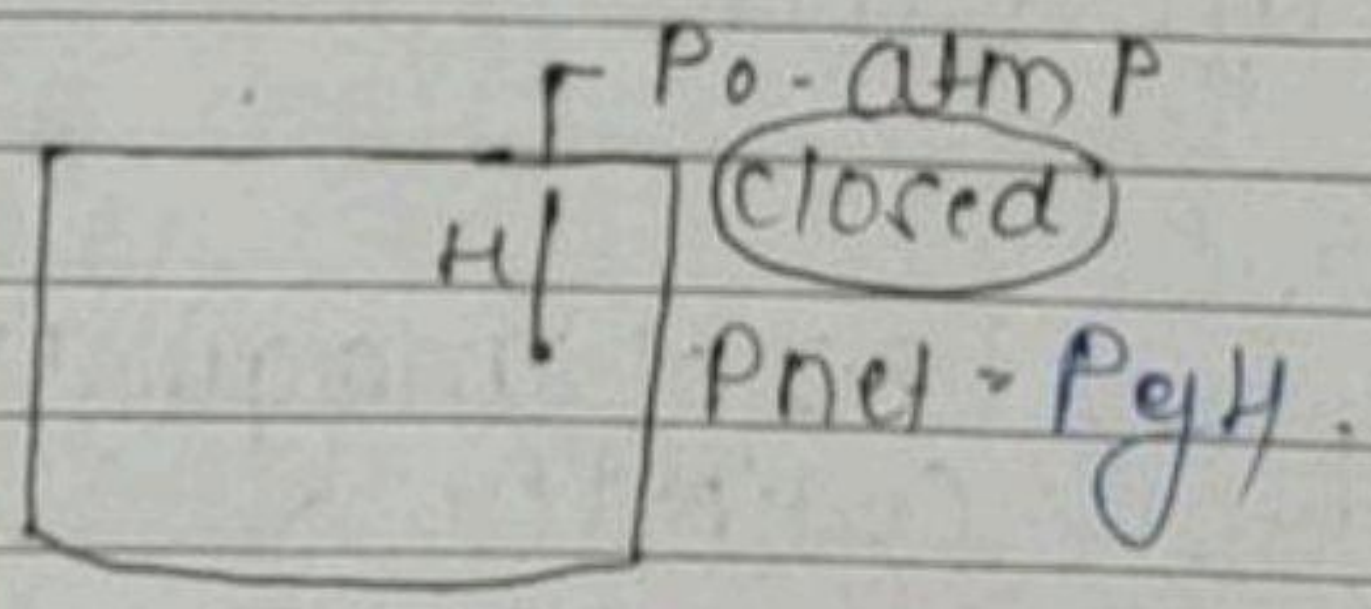 Po - atm P
closed
H
Pnet = PgH.